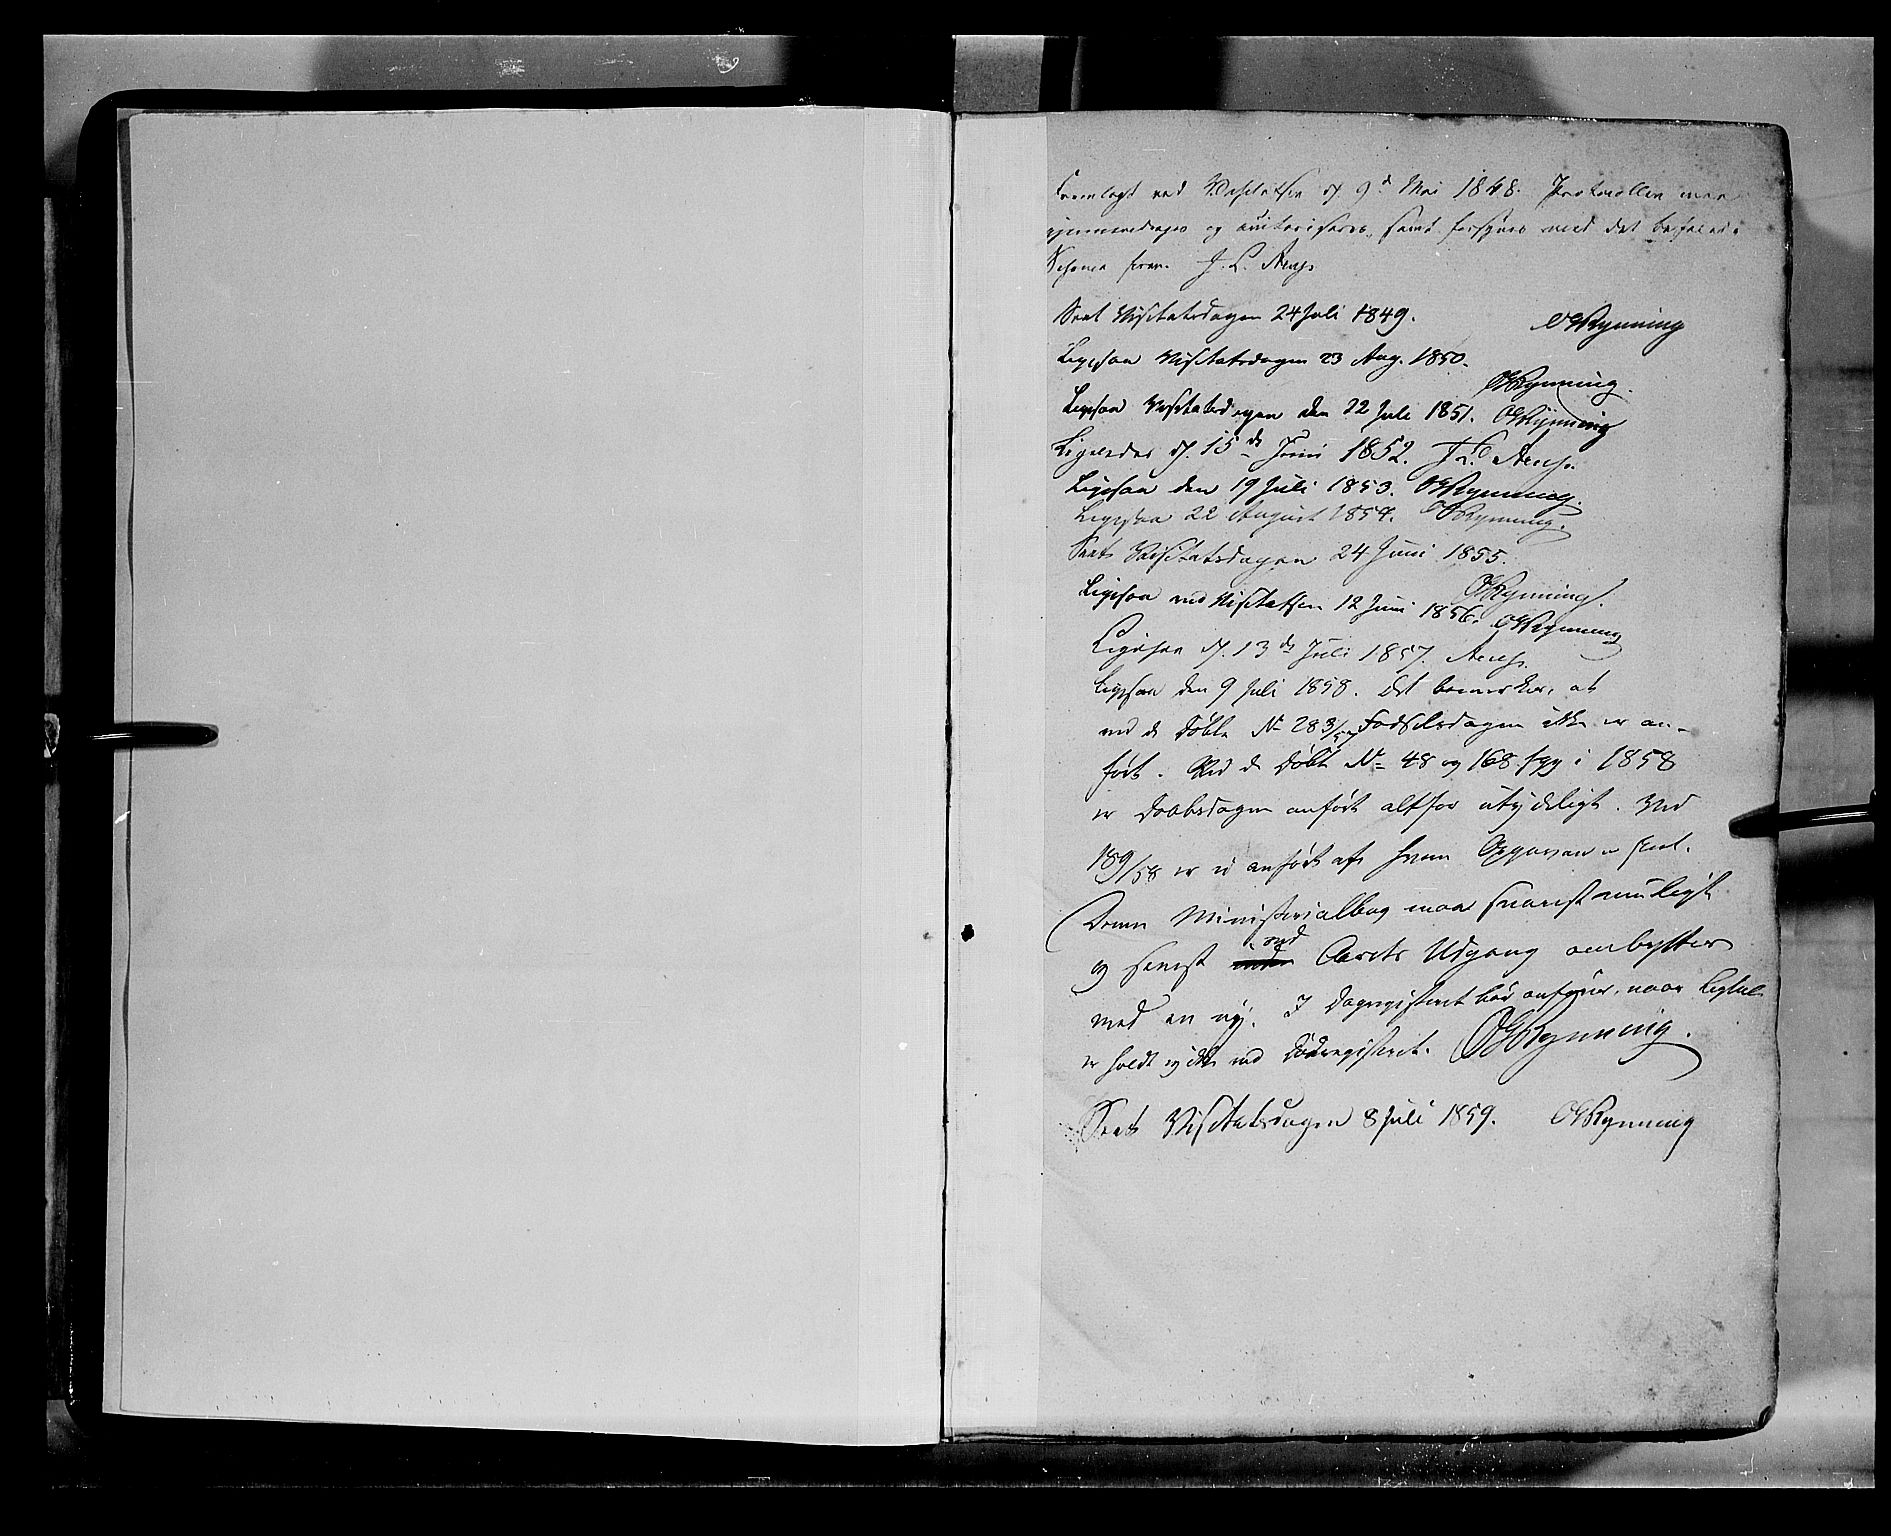 Fremlagt ved Visitatsen d. 9d Mai 1848. Protocollen maa
gjennemdrages og autoriseres, samt forsynes med det befalede
Schema foran. J. L. Arup
Seet Visitatsdagen 24 Juli 1849. OGRynning
Ligesaa Visitatsdagen 23 Aug. 1850.
OGRynning.
Ligesaa Visitatsdagen den 22 Juli 1851. OGRynning
Ligeledes d. 15de Juni 1852. J. L. Arup.
Ligesaa den 19 Juli 1853. OGRynning.
Ligesaa 22 August 1854. OGRynning.
Seet Visitatsdagen 24 Juni 1855.
OGRynning.
Ligesaa ved Visitatsen 12 Juni 1856. OGRynning
Ligesaa d. 13de Juli 1857. Arup.
Ligesaa den 9 Juli 1858. Det bemærkes, at
ved de Døbte No 283/57 Fødselsdagen ikke er an-
ført. Ved de Døbte No 48 og 168 fgg i 1858
er Daabsdagen anført altfor utydeligt. Ved
189/58 er ei anført af hvem Opgaven er skeet.
Denne Ministerialbog maa snarest muligt
og senest ved Aarets Udgang ombyttes
med en ny. I Dagregistret bør anføres, naar Ligtale
er holdt og ikke ved Dødsregistret. OGRynning.
Seet Visitatsdagen 8 Juli 1859. OGRynning